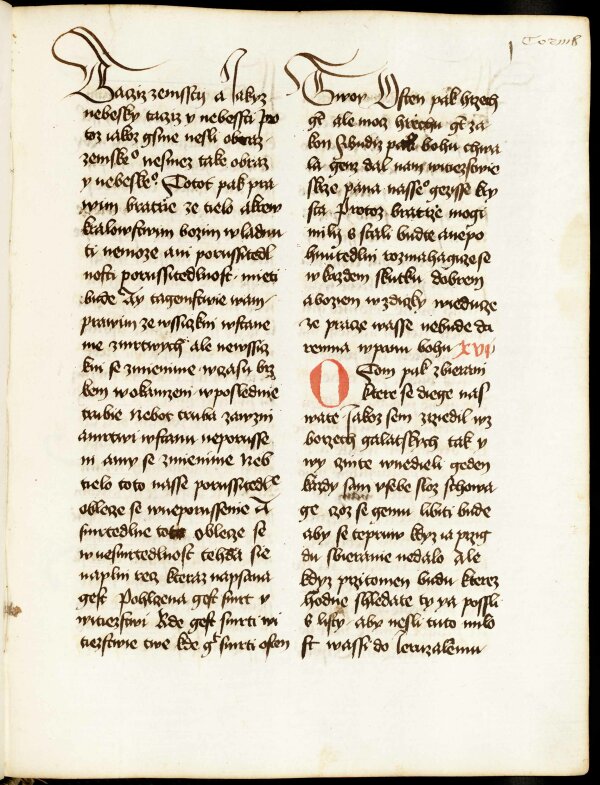 Tacizz zemssczij a Jakyz
nebesky tacizz y nebessti pro
toz iakoz gsme nesli obraz
zemskeº nesmez take obraz
y nebeskeº Totot pak pra
wim bratrie ze tielo akrew
kralowstwim bozim wladnu
ti nemoze ani porussitedl
nosti porussitedlnost mieti
bude Ay tagemstwie wam
prawim ze wssiczkni wstane
me zmrtwych ale newssicz
kni se zmienime wczasu brz
kem wokamzeni wposlednie
trubie Nebot truba zawzni
amrtwi wstanu neporusse
ni amy se zmienime Neb
tielo toto nasse porussitedlne
oblecze se wneporussenie A
smrtedlne toto oblecze se
wnesmrtedlnost tehda sie
naplni recz kteraz napsana
gest Pohlzena gest smrt v
witiezstwi Kde gest smrti wi
tiezstwie twe kde gt smrti osten
Twoy Osten pak hrzech
gt ale moc hrziechu gt za
kon Ale bohu chwa
la genz dal nam witiezstwie
skrze pana nasseº gezisse kry
sta Protoz bratrzie mogi
milij stali budte anepo
hnutedlni rozmahagicze se
wkazdem skutku dobrem
abozien wzdiczky wieducze
ze pracze wasse nebude da
remna wpanu bohu xvi
O Tom pak zbierani
ktere se diege nas
wate Jakoz sem zrziedil wz
borzech galatskych tak y
wy czinte wnedieli geden
kazdy sam vsebe sloz schowa
ge czoz se gemu libiti bude
aby se teprw kdyz ia przig
du sbieranie nedalo Ale
kdyz przytomen budu kterez
hodne shledate ty ya possli
s listy aby nesli tuto milo
st wassi do Jeruzalemu